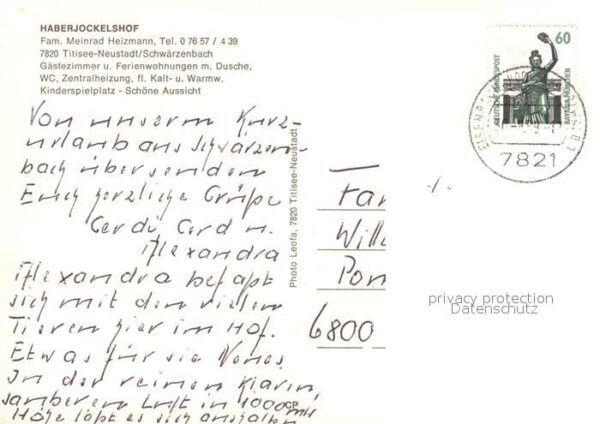 HABERJOCKELSHOF
Fam. Meinrad Heizmann, Tel. 0 76 57 / 4 39
7820 Titisee-Neustadt/Schwärzenbach
Gästezimmer u. Ferienwohnungen m. Dusche,
WC, Zentralheizung, fl. Kalt- u. Warmw.
Kinderspielplatz - Schöne Aussicht
Von unserem Kurz-
urlaub aus Schwärzen
bach übersenden
Euch herzliche Grüße
Gerdi, Gerd u.
Alexandra
Alexandra befaßt
sich mit den vielen
Tieren hier im Hof.
Etwas für sie Neues.
In der reinen klaren,
sauberen Luft in 1000 mtr
Höhe läßt es sich aushalten
Photo Leofa, 7820 Titisee-Neustadt
Fam
Will
Pon
6800
60
DEUTSCHE BUNDESPOST
BAVARIA MÜNCHEN
7821
privacy protection
Datenschutz